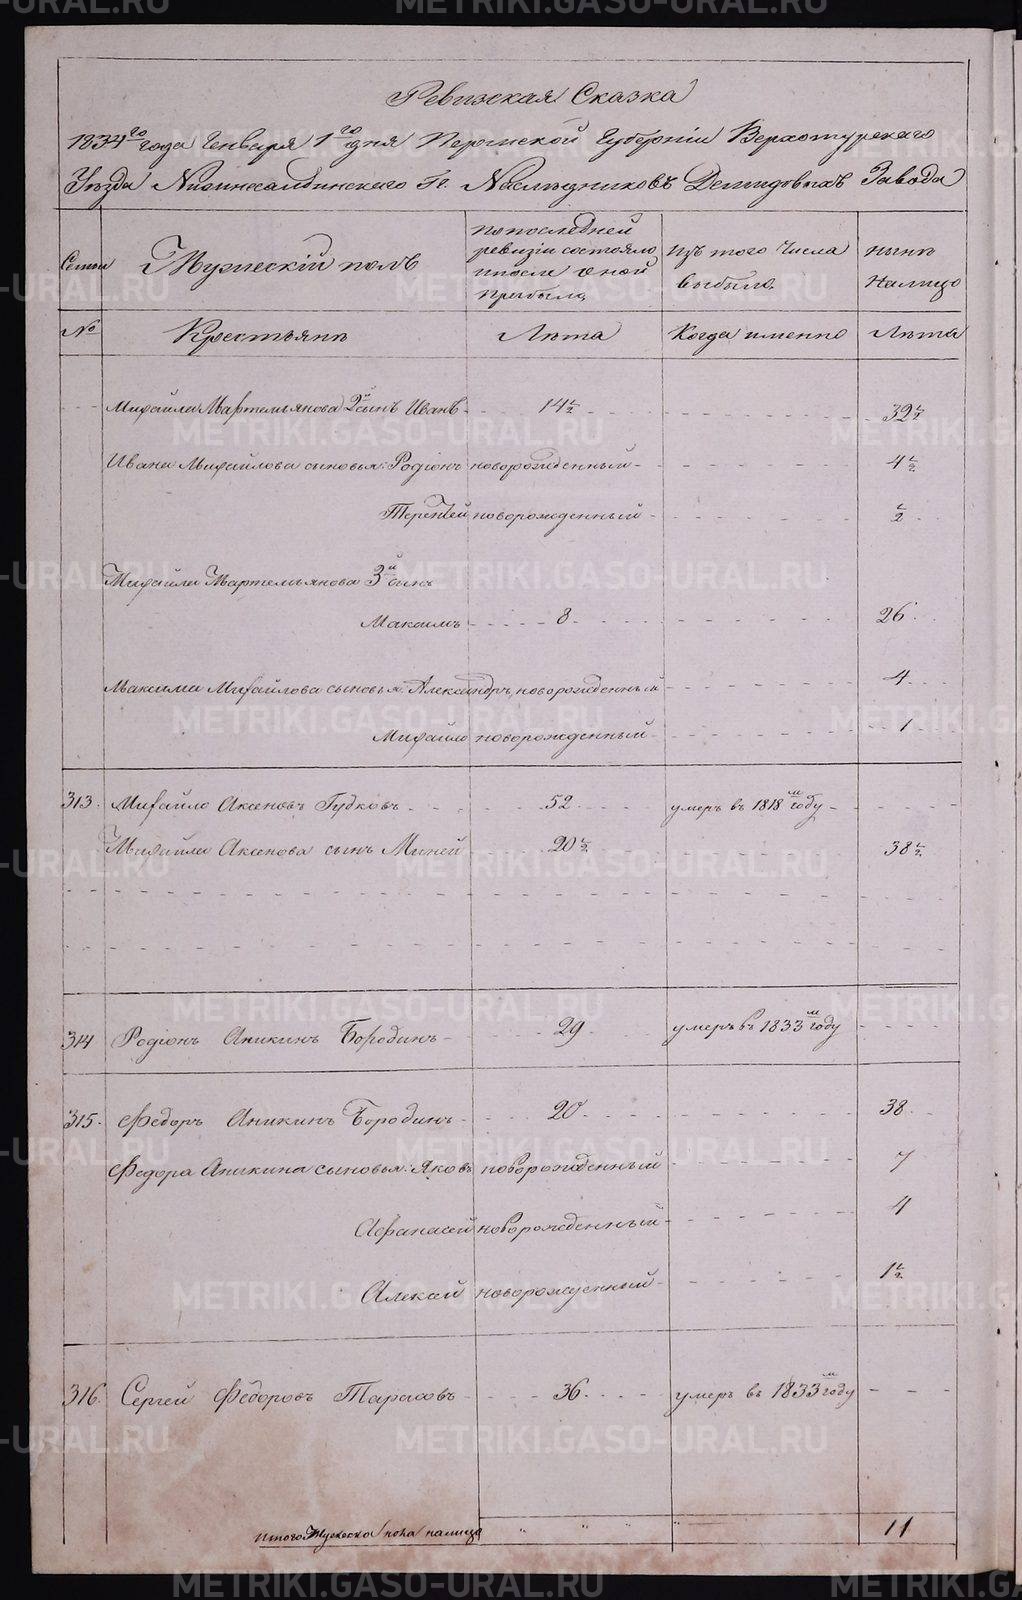 Ревизская Сказка
1834го года Генваря 1го дня Пермской Губерніи Верхотурскаго
Уѣзда Нижнесалдинскаго Гг. Наслѣдниковъ Демидовыхъ Завода
Семьи
Мужескій полъ
По последней ревизіи состояло и после оной прибыло
Изъ того Числа выбыло
Нынѣ Налицо
№ Крестьянъ Лѣта Когда именно Лѣта
Михайла Мартемьянова 2й сынъ Иванъ 14½ 32½
Ивана Михайлова сыновья: Родіонъ новорожденный 4½
Терентей новорожденный ½
Михайла Мартемьянова 3й сынъ
Максимъ 8 26
Максима Михайлова сыновья: Александръ новорожденный 4
Михайло новорожденный 1
313. Михайло Аксеновъ Гудковъ 52 умеръ въ 1818м году
Михайла Аксенова сынъ Миней 20½ 38½
314 Родіонъ Аникинъ Бородинъ 29 умеръ въ 1833м году
315. Федоръ Аникинъ Бородинъ 20 38
Федора Аникина сыновья: Яковъ новорожденный 7
Афанасей новорожденный 4
Алексей новорожденный 1½
316. Сергей Федоровъ Тарасовъ 36 умеръ въ 1833м году
Итого Мужеска пола налицо 11
METRIKI.GASO-URAL.RU